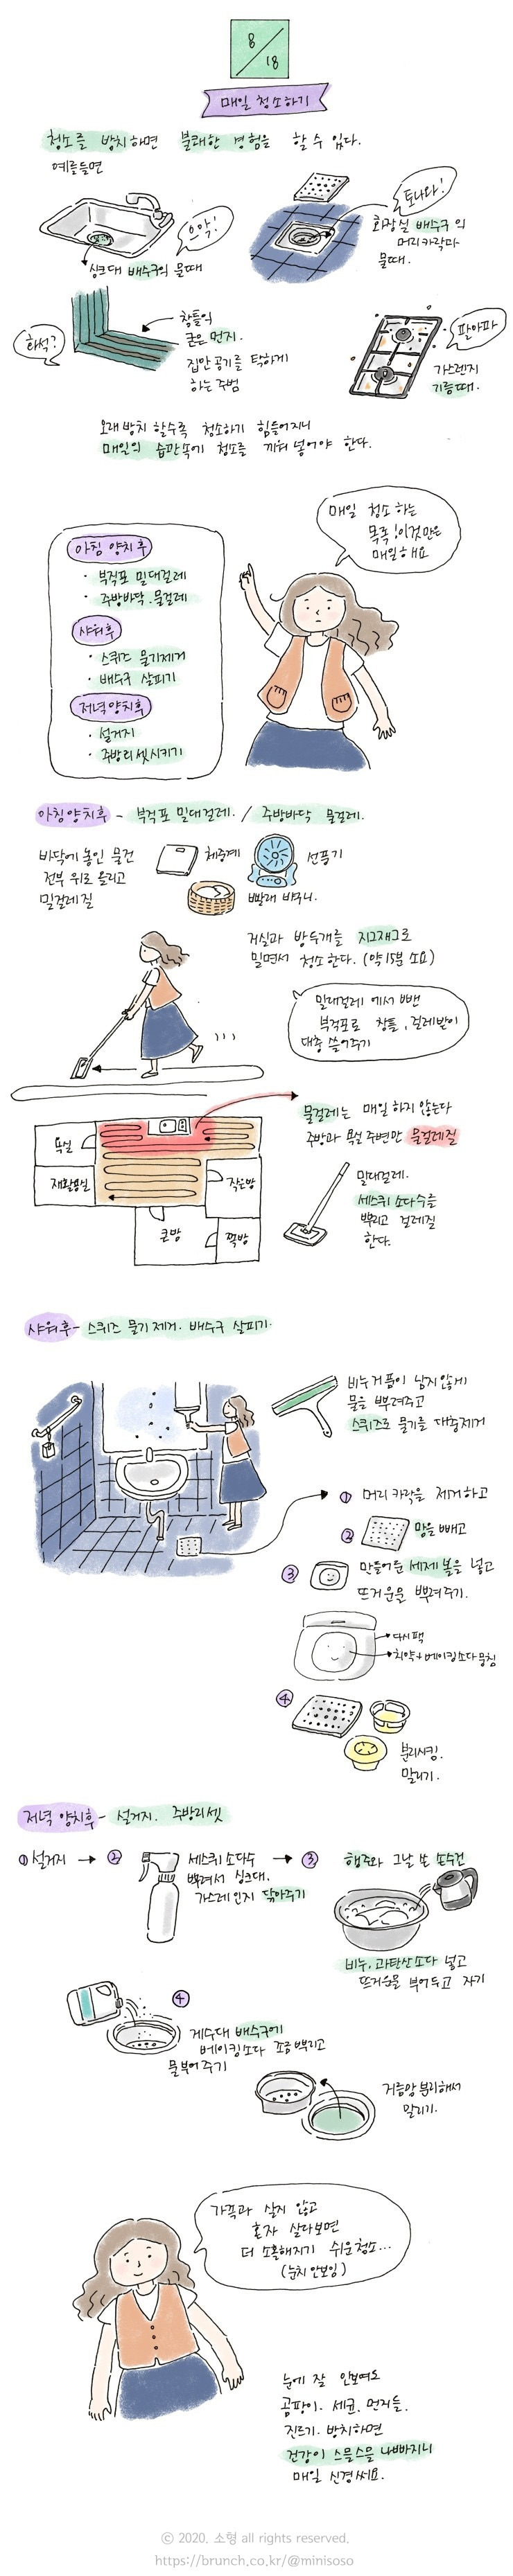 8/18
매일 청소하기
청소를 방치하면 불쾌한 경험을 할 수 있다.
예를들면
으악!
싱크대 배수구의 물때
토나와!
화장실 배수구의
머리카락과
물때.
화석?
창틀의
굳은 먼지.
집안 공기를 탁하게
하는 주범
팔아파
가스렌지
기름때.
오래 방치 할수록 청소하기 힘들어지니
매일의 습관속에 청소를 끼워 넣어야 한다.
매일 청소 하는
목록! 이것만은
매일 해요
아침 양치 후
· 부직포 밀대걸레
· 주방바닥. 물걸레
샤워후
· 스퀴즈 물기제거
· 배수구 살피기
저녁양치후
· 설거지
· 주방리셋시키기
아침양치후 - 부직포 밀대걸레. / 주방바닥 물걸레.
바닥에 놓인 물건
전부 위로 올리고
밀걸레질
체중계
선풍기
빨래 바구니.
거실과 방두개를 지그재그로
밀면서 청소한다. (약 15분 소요)
밀대걸레 에서 뺀
부직포로 창틀, 걸레받이
대충 쓸어주기
물걸레는 매일 하지 않는다
주방과 욕실 주변만 물걸레질
욕실
재활용실
작은방
큰방
쪽방
밀대걸레.
세스퀴 소다수를
뿌리고 걸레질
한다.
샤워후 - 스퀴즈 물기 제거. 배수구 살피기.
비누거품이 남지않게
물을 뿌려주고
스퀴즈로 물기를 대충제거
① 머리카락을 제거하고
② 망을 빼고
③ 만들어둔 세제 볼을 넣고
뜨거운물 뿌려주기.
다시팩
치약+베이킹소다 뭉침
④
분리시킴.
말리기.
저녁 양치후 - 설거지. 주방리셋
① 설거지 → ② 세스퀴 소다수 → ③
뿌려서 싱크대.
가스레인지 닦아주기
행주와 그날 쓴 손수건
비누, 과탄산소다 넣고
뜨거운물 부어두고 자기
④
개수대 배수구에
베이킹소다 조금뿌리고
물부어주기
거름망 분리해서
말리기.
가족과 살지 않고
혼자 살다보면
더 소홀해지기 쉬운 청소...
(눈치 안보임)
눈에 잘 안보여도
곰팡이. 세균, 먼지들.
진드기. 방치하면
건강이 스믈스믈 나빠지니
매일 신경써요.
© 2020. 소형 all rights reserved.
https://brunch.co.kr/@minisoso